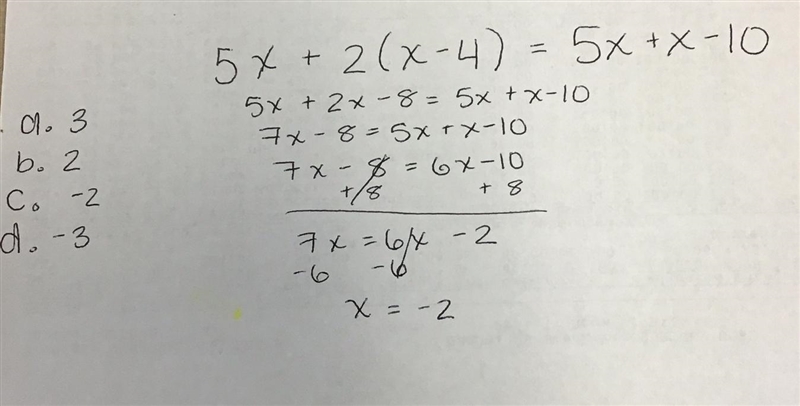 5x + 2(x-4) = 5x+x-10
5x + 2x - 8 = 5x + x-10
7x - 8 = 5x + x-10
7x - 8 = 6x-10
+8 + 8
7x = 6x - 2
-6 -6
x = -2
a. 3
b. 2
c. -2
d. -3